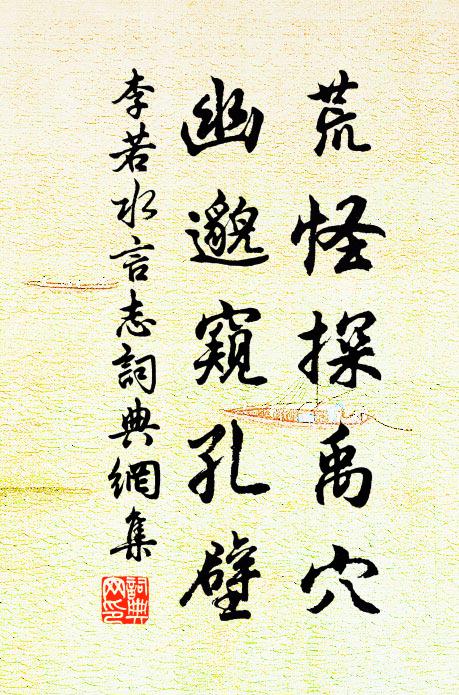 荒怪探禹穴
幽邈窺孔壁
李若水言志詞典網集
詞典
网印